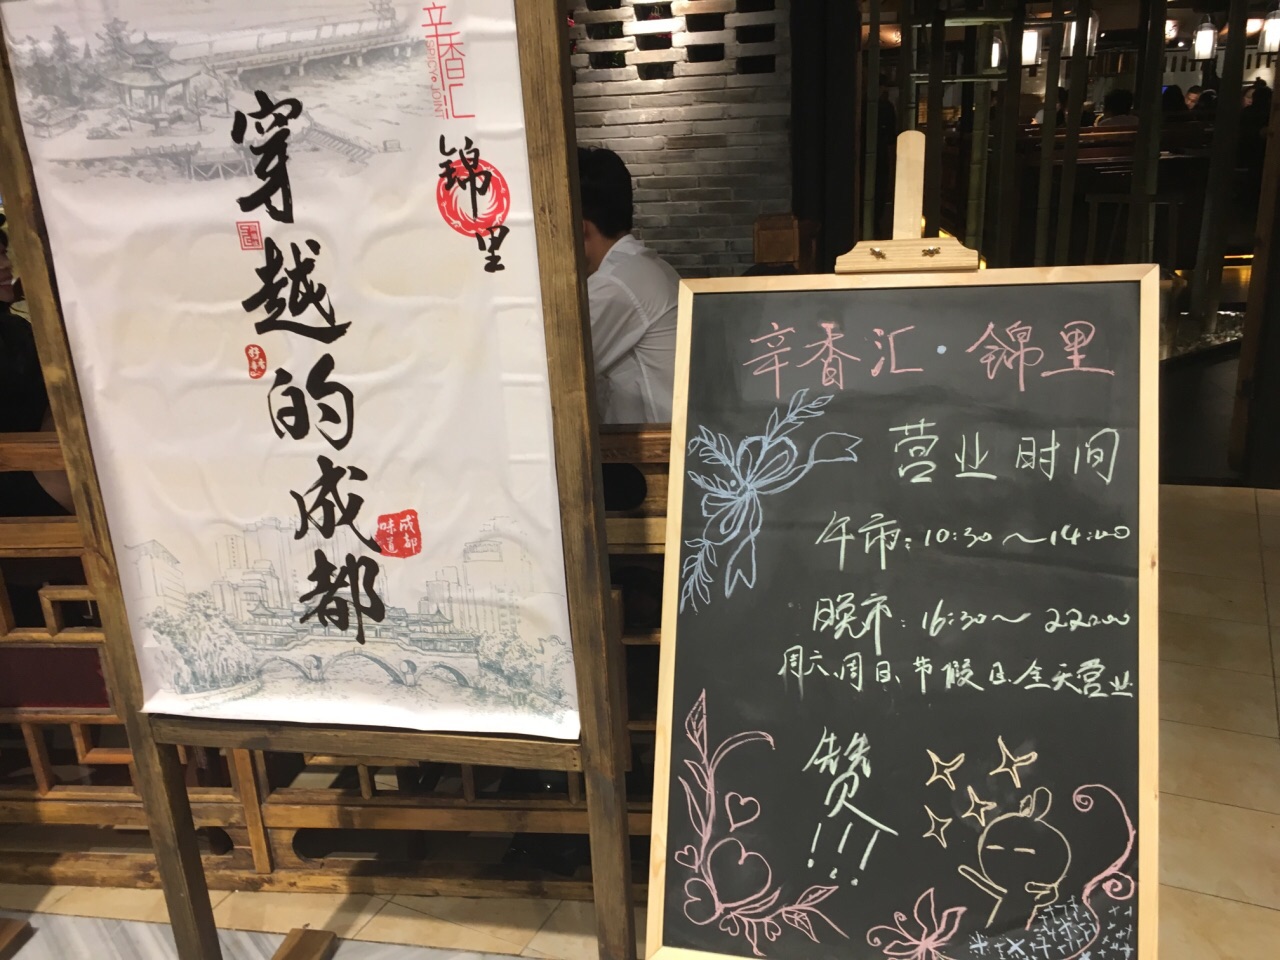 辛香汇
SPICY JOINT
锦里
穿越的成都
成都
味道
辛香汇·锦里
营业时间
午市:10:30~14:00
晚市:16:30~22:00
周六、周日、节假日、全天营业
赞
!!!